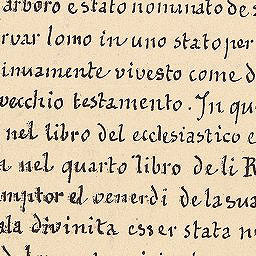 arboro e stato nominato de s
rvar lomo in uno stato per
inuamente vivesto come d
vecchio testamento. In qu
nel libro del ecclesiastico e
a nel quarto libro de li R
mptor el venerdi de la sua
ala divinita esser stata n